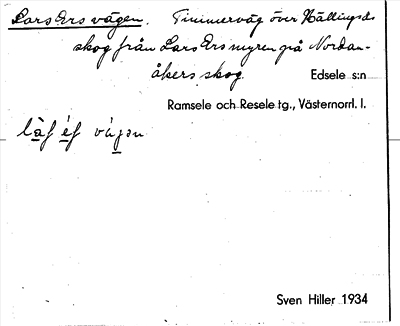 Lars Ers vägen. Timmerväg över Hällingsås
skog från Lars Ersmyren på Nordan-
åkers skog. Edsele s:n
Ramsele och Resele tg., Västernorrl. l.
Sven Hiller 1934